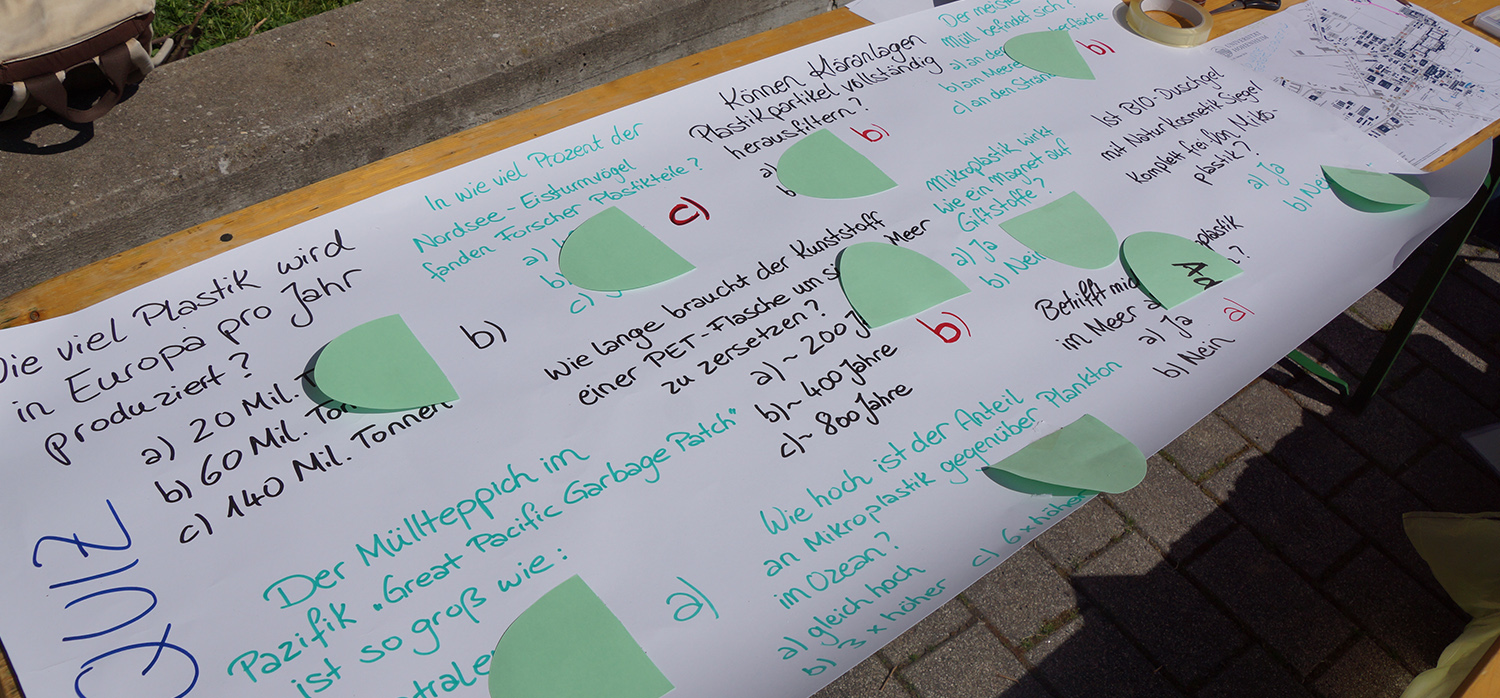 QUIZ
Wie viel Plastik wird
in Europa pro Jahr
produziert?
a) 20 Mil. T
b) 60 Mil. Ton
c) 140 Mil. Tonnen
b)
In wie viel Prozent der
Nordsee-Eissturmvögel
fanden Forscher Plastikteile?
a)
b)
c)
c)
Können Kläranlagen
Plastikpartikel vollständig
herausfiltern?
a)
b
b)
Der meiste
Müll befindet sich?
a) an der berfläche
b) am Meere
c) an den Strän
b)
Der Müllteppich im
Pazifik „Great Pacific Garbage Patch"
ist so groß wie:
a)
Wie lange braucht der Kunststoff
einer PET-Flasche um si Meer
zu zersetzen?
a) ~ 200 J
b) ~ 400 Jahre
c) ~ 800 Jahre
b)
Mikroplastik wirkt
wie ein Magnet auf
Giftstoffe?
a) Ja
b) Nein
Ist BIO-Duschgel
mit Naturkosmetik Siegel
komplett frei von Miko-
plastik?
a) Ja
b) Nei
Wie hoch ist der Anteil
an Mikroplastik gegenüber Plankton
im Ozean?
a) gleich hoch
b) 3 x höher c) 6 x höher
Betrifft mic plastik
im Meer ?
a) Ja
b) Nein
a)
UNIVERSITÄT
HOHENHEIM